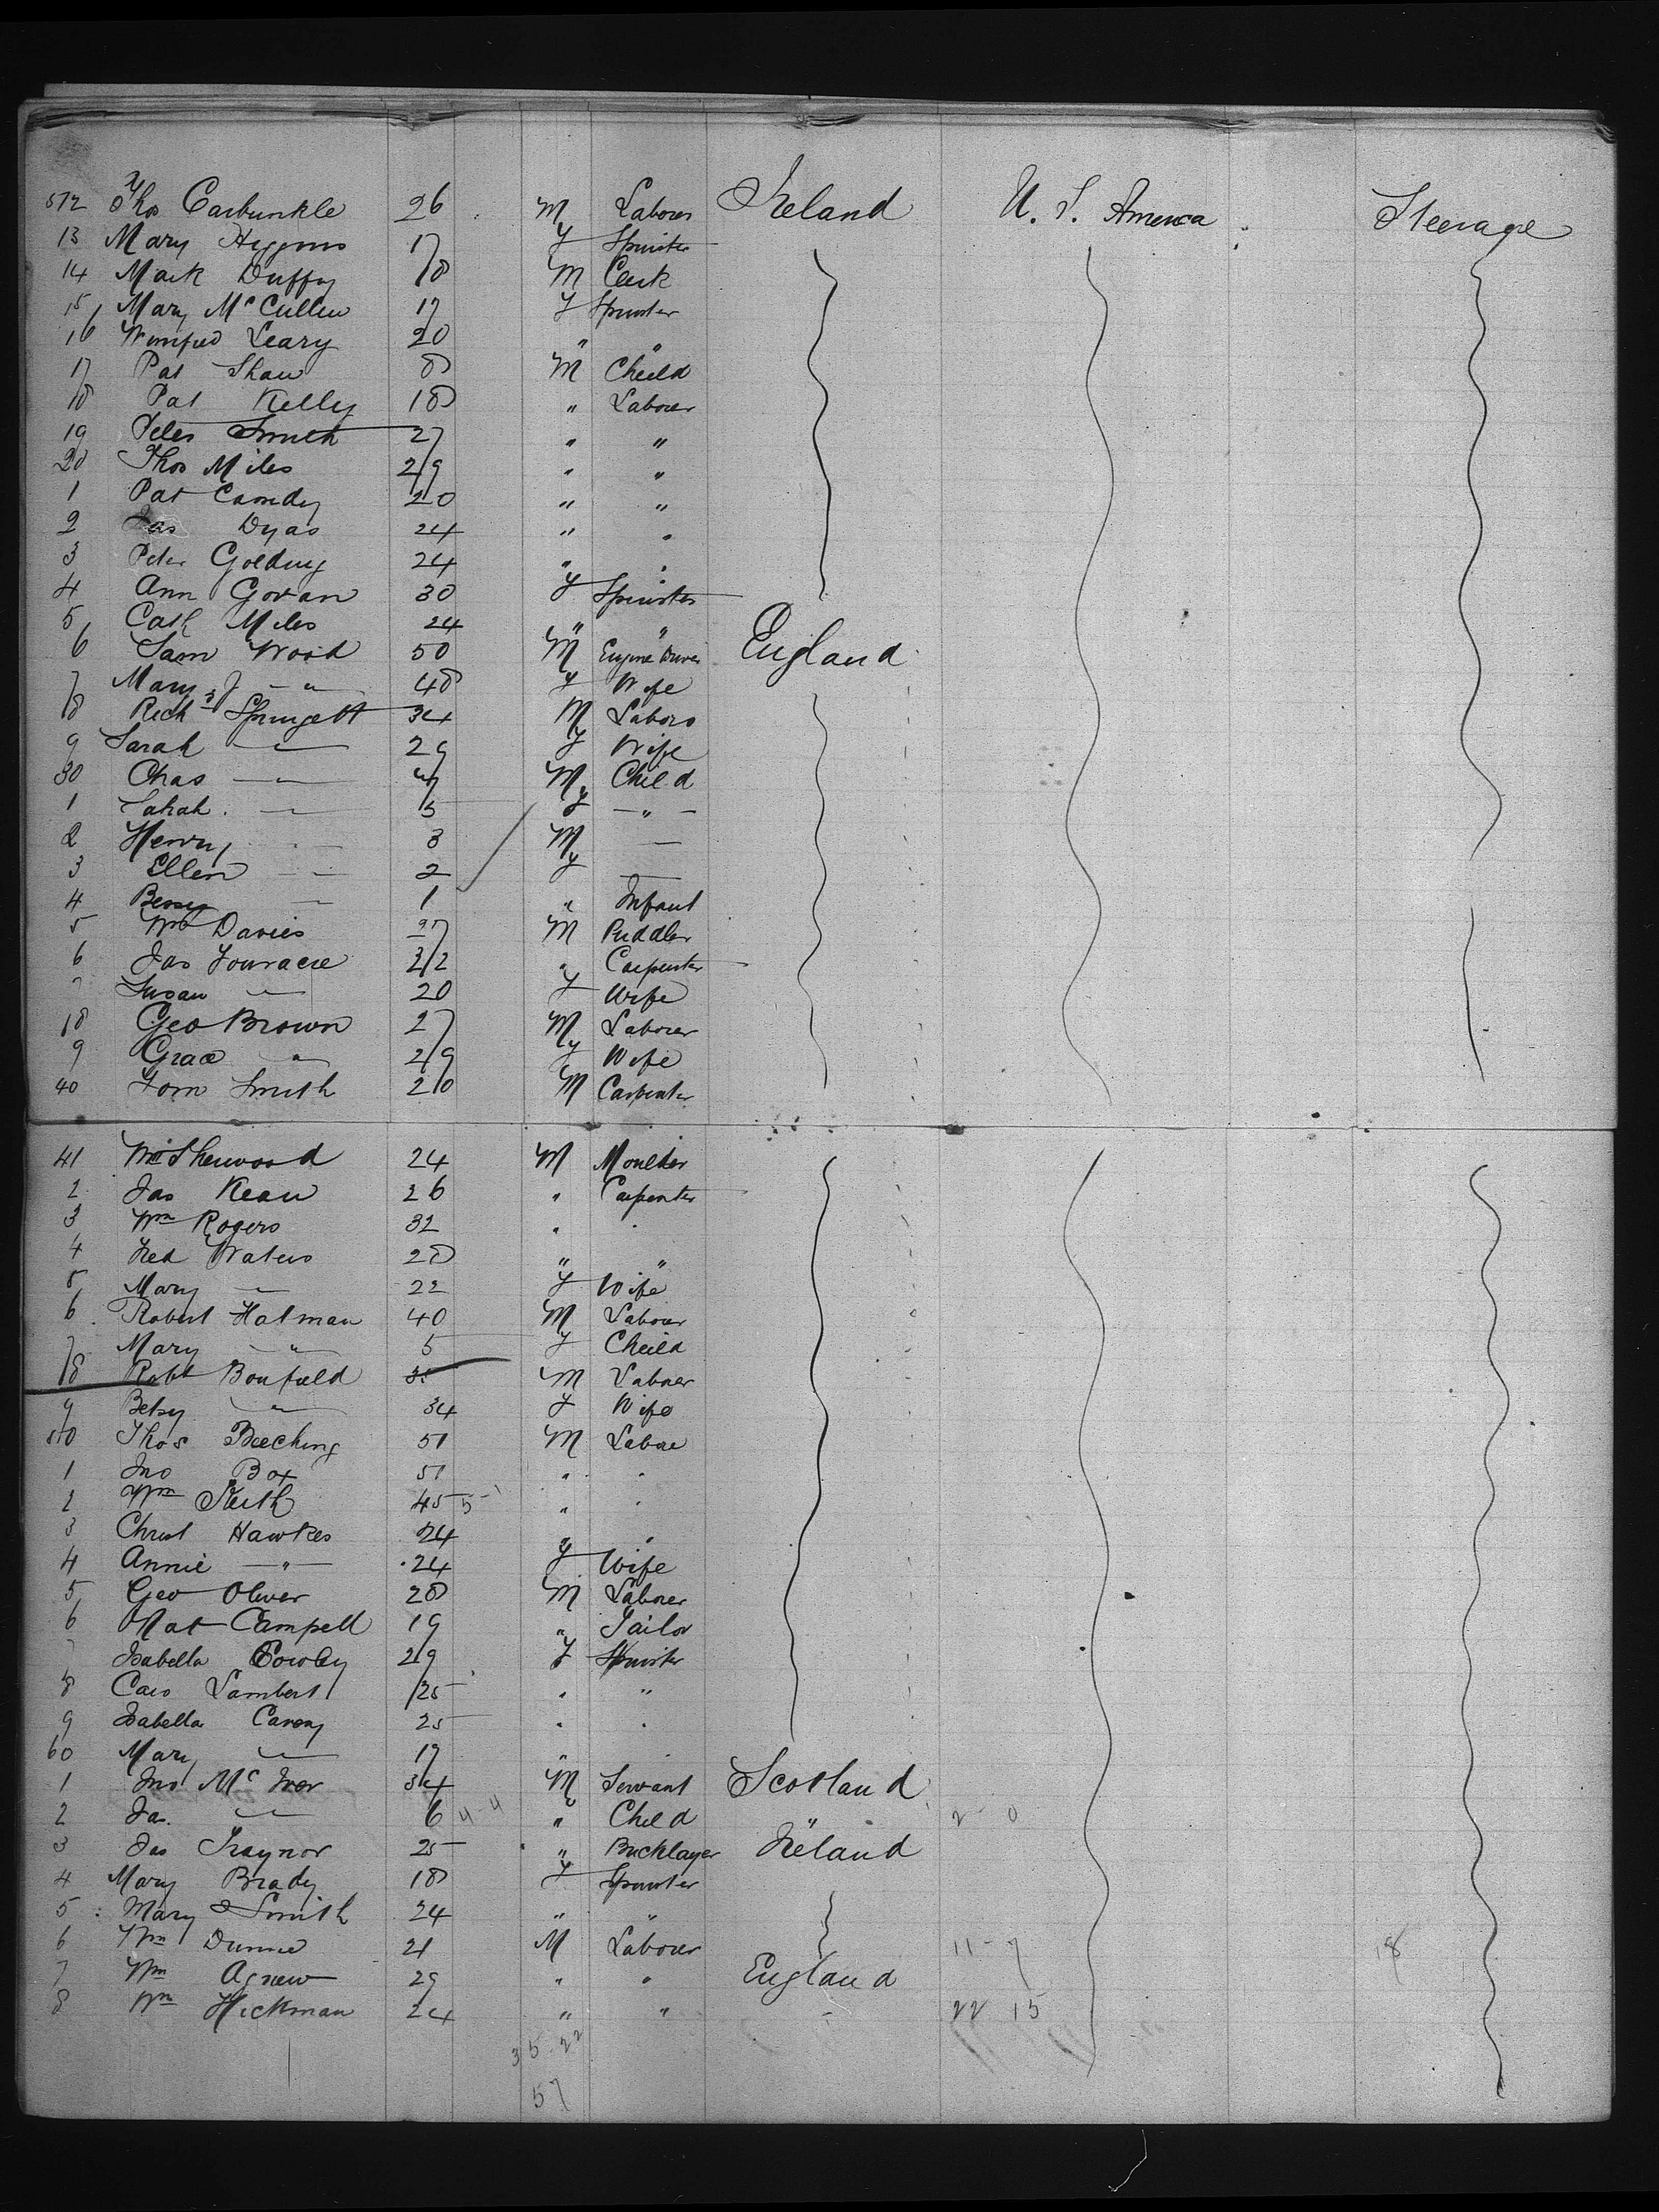 512 Thos Carbunkle 26 M Laborer Ireland U. S. America Steerage
13 Mary Higgins 17 F Spinster
14 Mark Duffy 18 M Clerk
15 Mary McCullen 17 F Spinster
16 Winifred Leary 20 " "
17 Pat Shaw 8 M Cheild
18 Pat Kelly 18 " Laborer
19 Peter Smith 27 " "
20 Thos Miles 29 " "
1 Pat 20 " "
2 Jas Dyas 24 " "
3 Peter Golding 24 " "
4 Ann Govan 30 F Spinster
5 Cath Miles 24 " "
6 Sam Wood 50 M Engine Driver England
7 Mary J " 48 F Wife
18 Richd Springett 34 M Labors
9 Sarah " 29 F Wife
30 Chas " M Child
1 Sarah " 5 F "
2 Henry " 3 M
3 Ellen " 2 F
4 Bessy 1 " Infant
5 Wm Davies 27 M Puddler
6 Jas Fouracre 32 " Carpenter
7 Susan " 20 F Wife
18 Geo Brown 27 M Laborer
9 Grace " 29 F Wife
40 Tom Smith 20 M Carpenter
41 Wm Sherwood 24 M Moulder
2 Jas Kean 26 " Carpenter
3 Wm Rogers 32 " "
4 Fred Waters 28 " "
5 Mary " 22 F Wife
6 Robert Hatman 40 M Laborer
7 Mary " 5 F Cheild
18 Robt Bonfield 35 M Laborer
9 Betsy " 34 F Wife
550 Thos Beeching 51 M Labore
1 Jno Box 51 " "
2 Wm Keith 45 " "
3 Christ Hawkes 24 " "
4 Annie " 24 F Wife
5 Geo Oliver 28 M Laborer
6 Nat Campell 19 " Tailor
7 Isabella Cowley 29 F Spinster
8 Caro Lambert 25 " "
9 Isabella Carey 25 " "
60 Mary " 17 "
1 Jno McIvor 34 M Servant Scotland
2 Jas. " 6 4-4 " Child 2-0
3 Jas Traynor 25 " Bricklayer Ireland
4 Mary Brady 18 F Spinster
5 Mary Smith 24 " "
6 Wm Dunne 21 M Laborer 11-7 18
7 Wm Agnew 29 " " England
8 Wm Hickman 24 " " 22 15
35-22
57